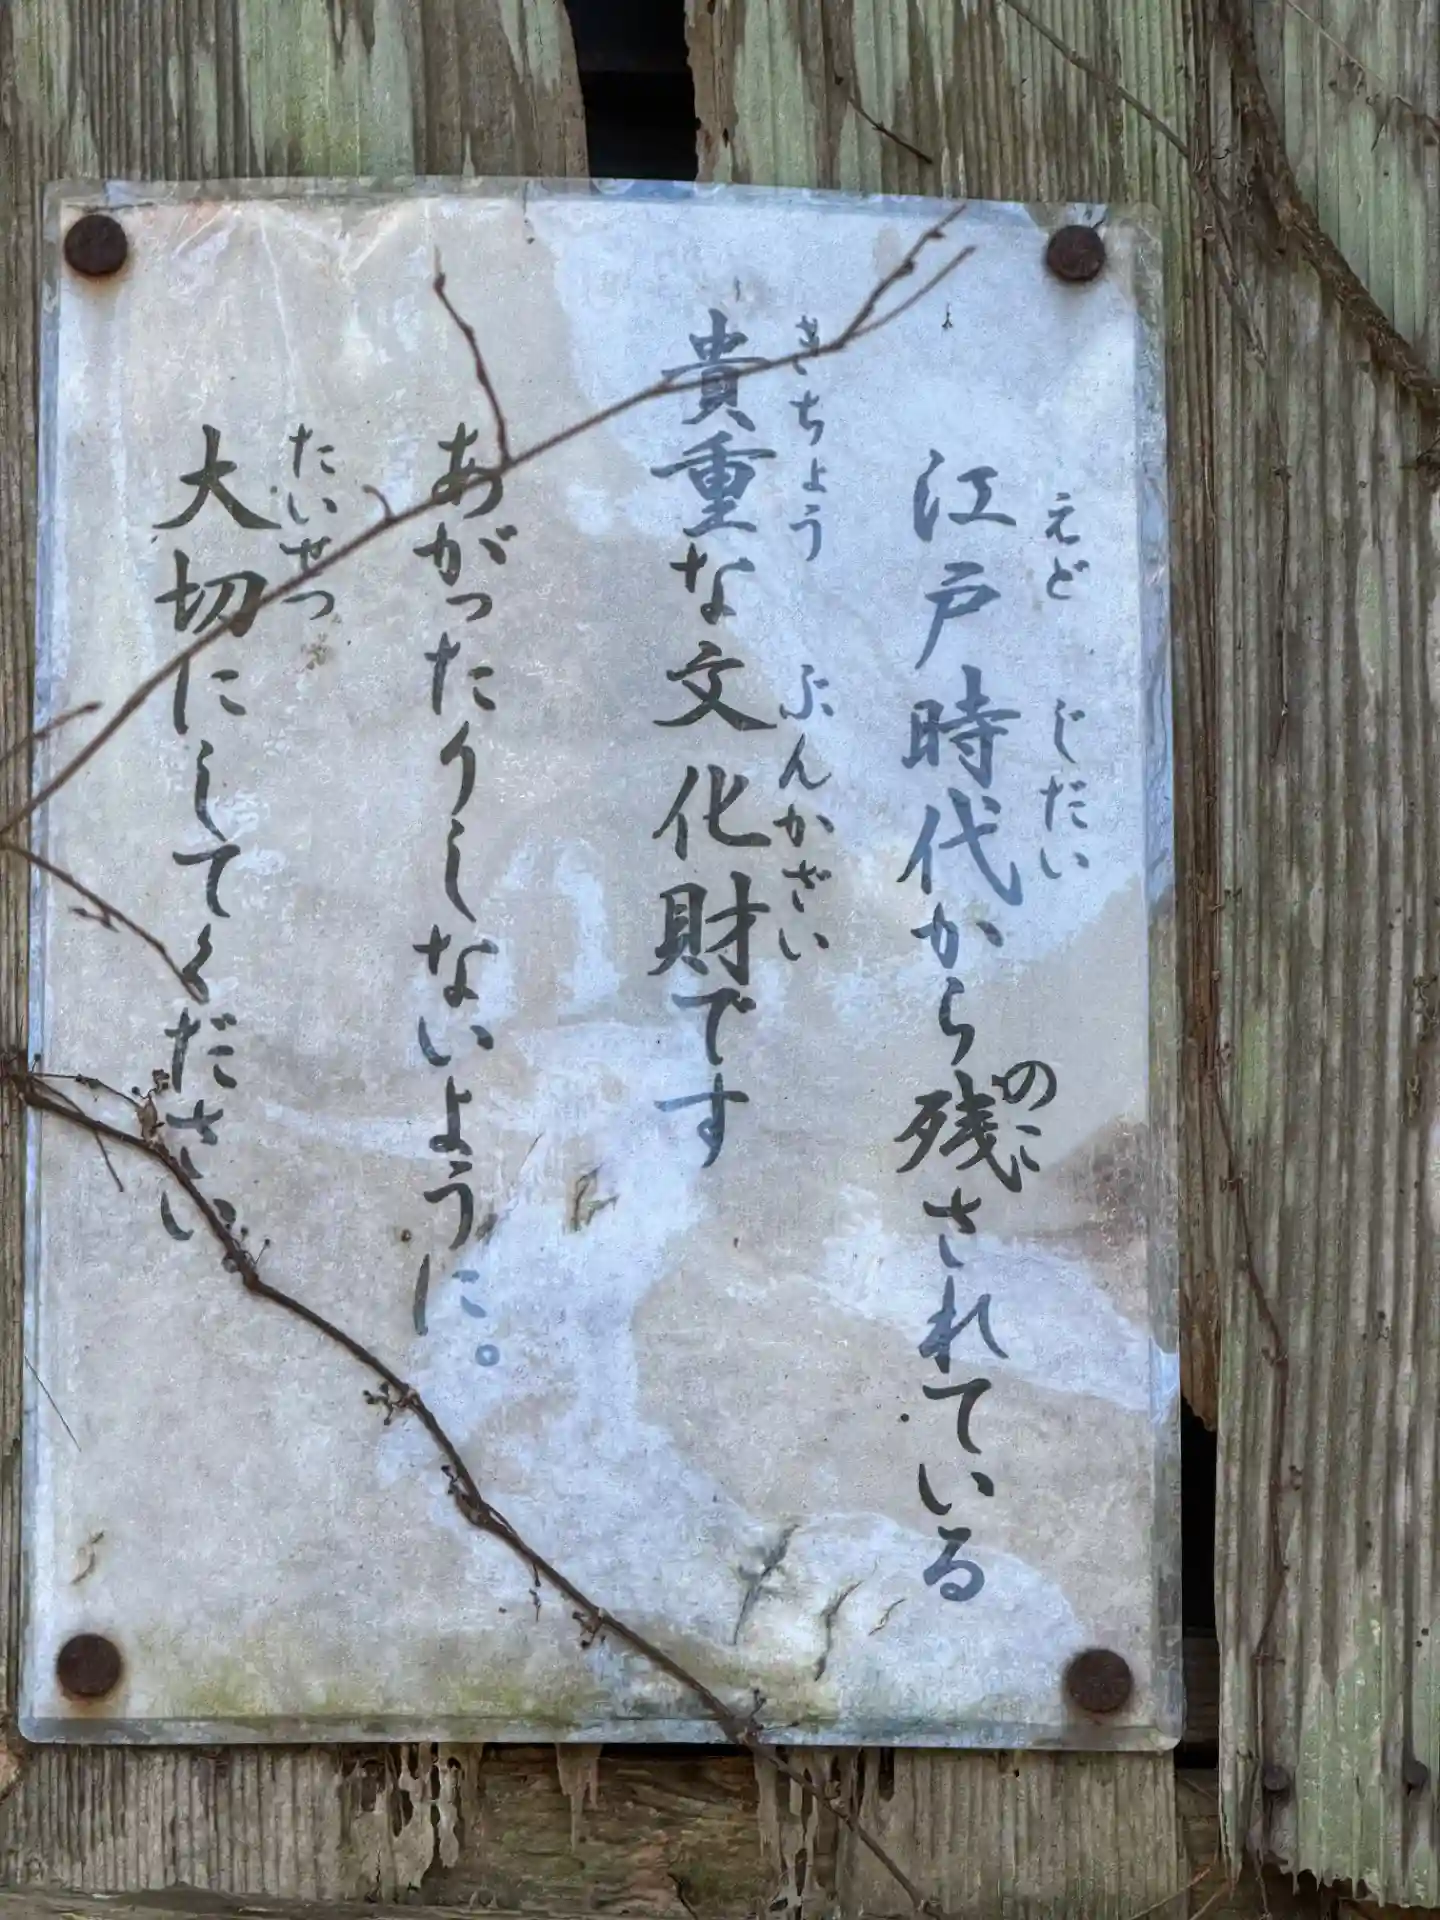 江戸時代から残されている
えど じだい のこ
貴重な文化財です
きちょう ぶんかざい
あがったりしないように。
大切にしてください
たいせつ